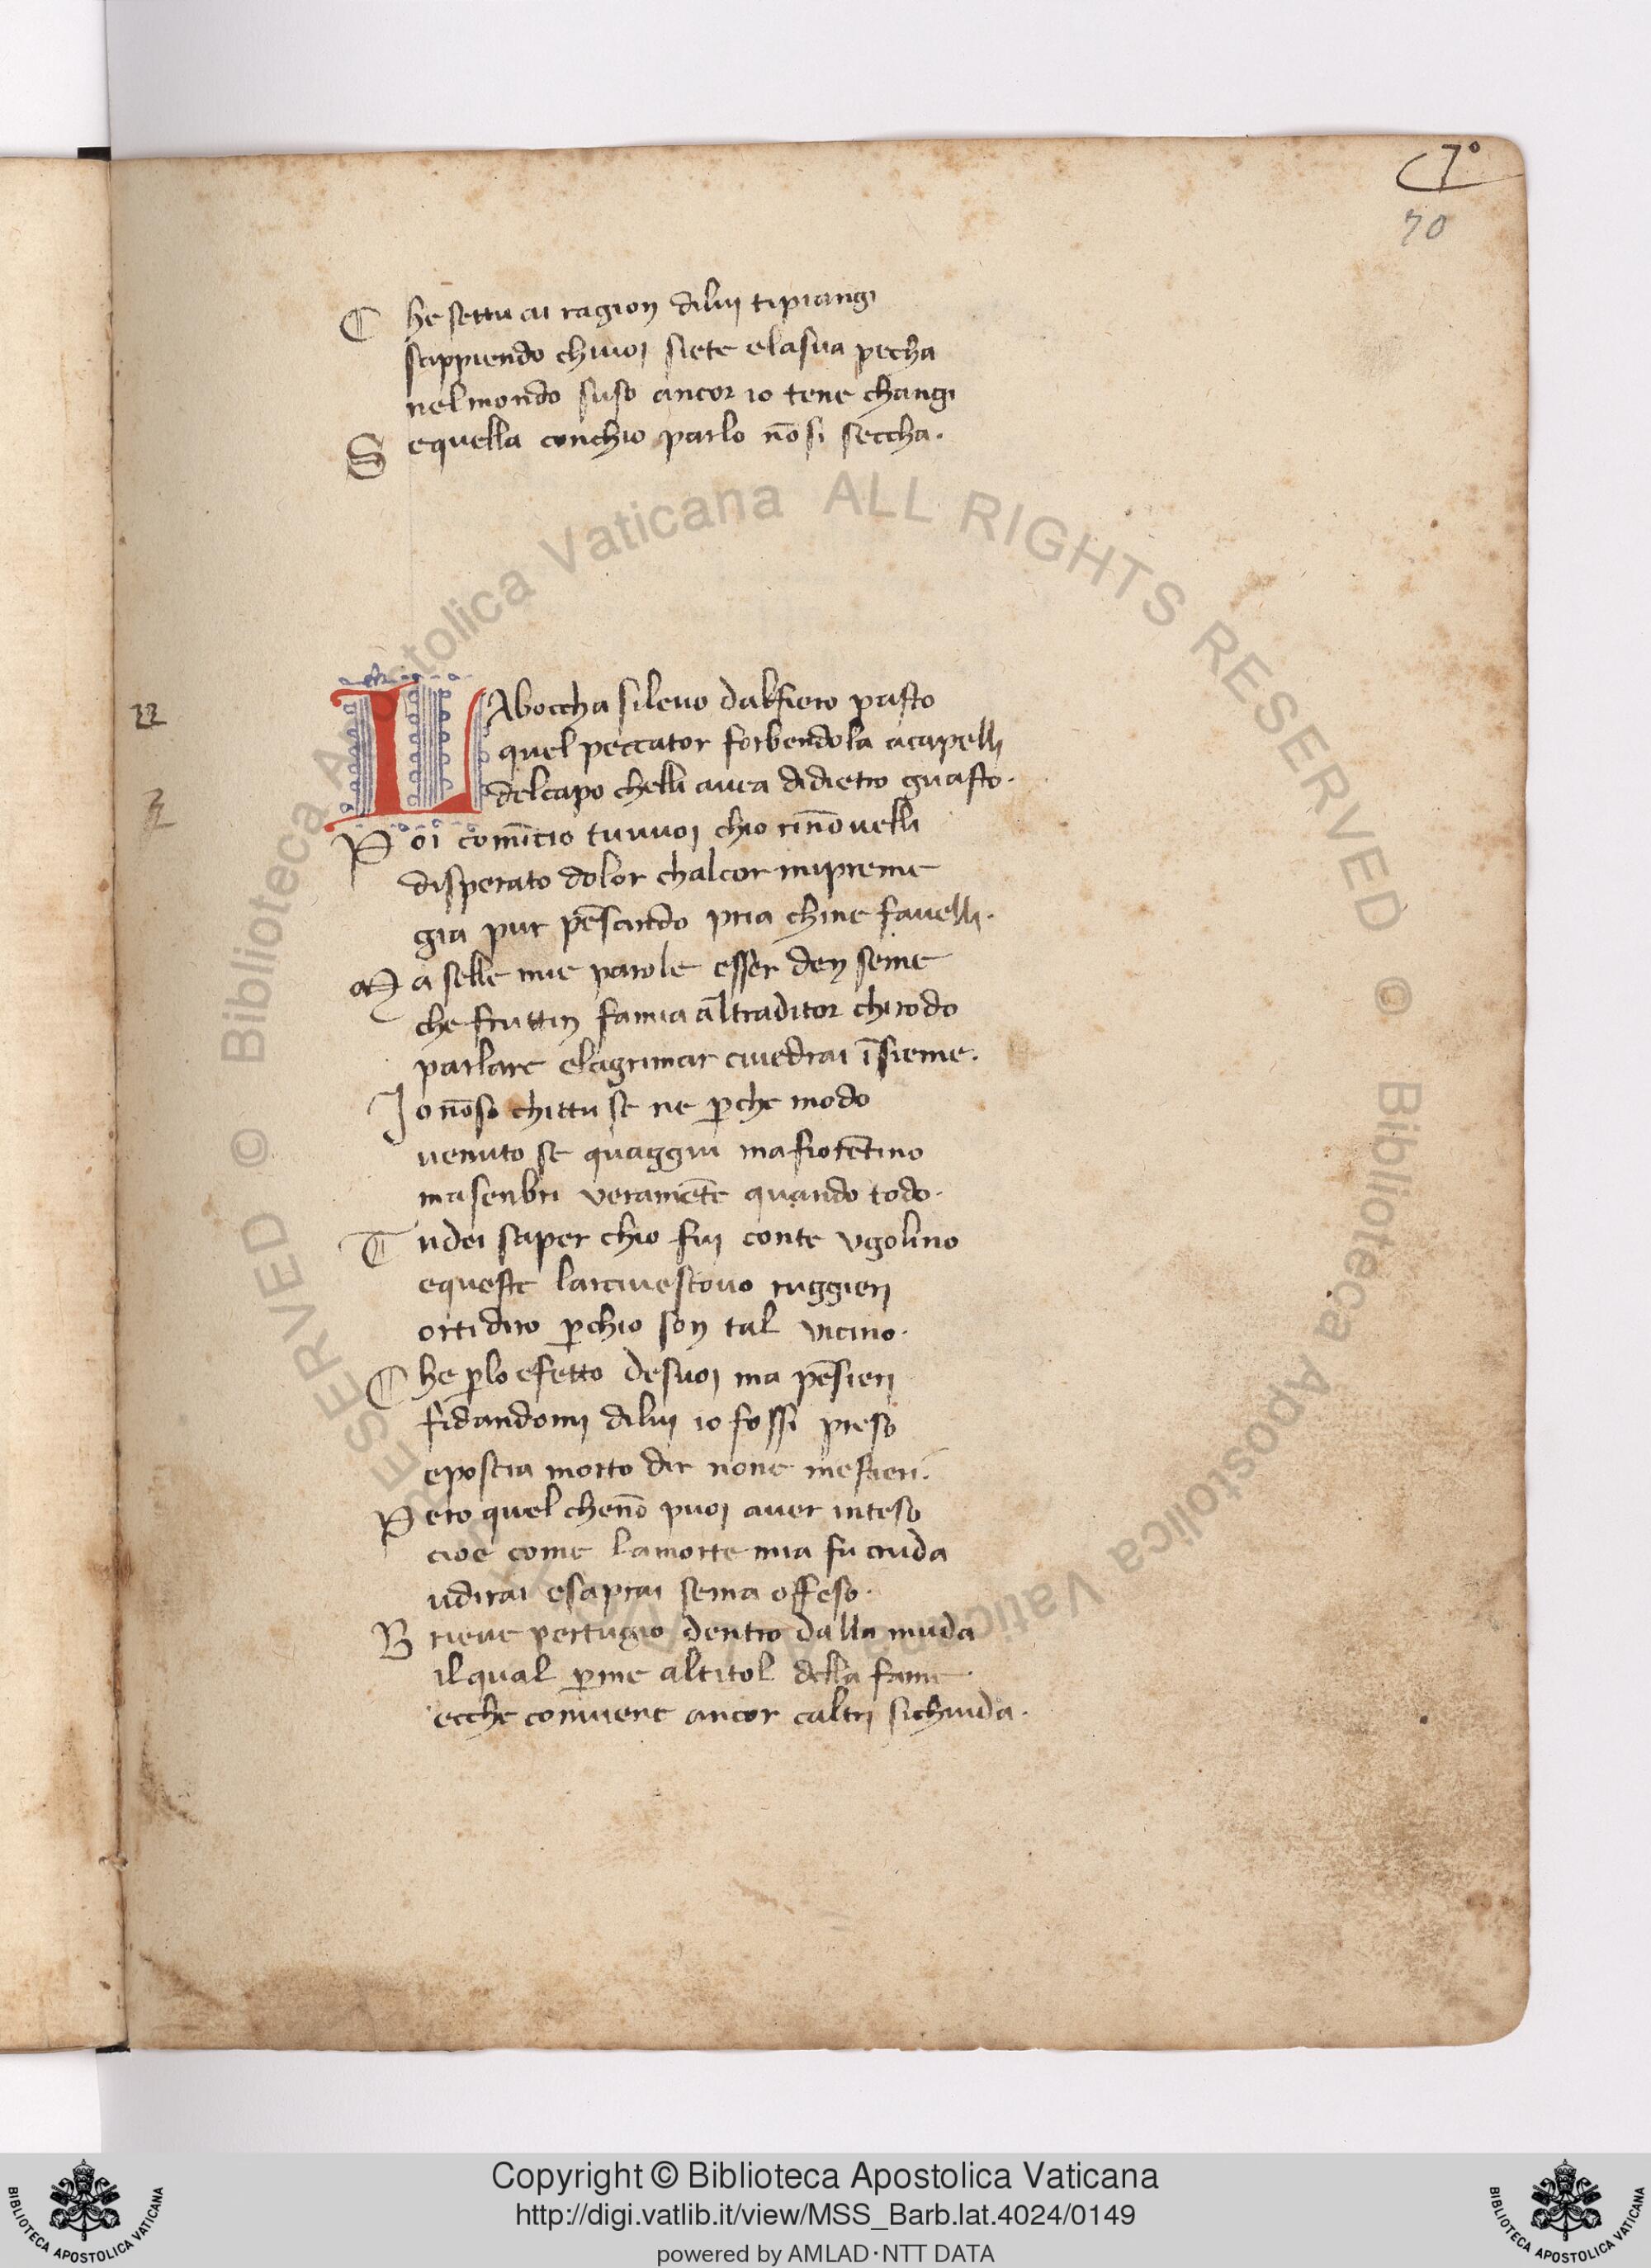 7°
70
C he settu ai ragion dilui tipiangi
sappiendo chiuoi siete elasua pecha
nelmondo suso ancor io tene changi
S equella conchio parlo nō si seccha.
LAboccha sileuo dalfiero pasto
quel peccator forbendola acapelli
delcapo chelli auea didietro guasto.
P oi comīcio tuuuoi chio rīnōuelli
disperato dolor chalcor mipreme
gia pur pēsando pria chine fauelli.
M a selle mie parole esser den seme
che fruttin famia āltraditor chirodo
parlare elagrimar ciuedrai īsieme.
Io nōso chittu se ne p̄che modo
uenuto se quaggiu mafiorētino
masenbri veramēte quando todo.
T udei saper chio fui conte vgolino
equeste larciuescouo ruggieri
ortidiro p̄chio son tal vicino.
C he p̄lo efetto desuoi ma pēsieri
fidandomi dilui io fossi preso
eposcia morto dir none mestieri.
P ero quel chenō puoi auer inteso
cioe come lamorte mia fu cruda
udirai esaprai sema offeso.
B rieue pertugio dentro dalla muda
ilqual p̄me altitol della fame
ecche conuiene ancor caltri sichiuda.
Copyright © Biblioteca Apostolica Vaticana
http://digi.vatlib.it/view/MSS_Barb.lat.4024/0149
powered by AMLAD·NTT DATA
BIBLIOTECA APOSTOLICA VATICANA
BIBLIOTECA APOSTOLICA VATICANA
© Biblioteca Apostolica Vaticana ALL RIGHTS RESERVED © Biblioteca Apostolica Vaticana